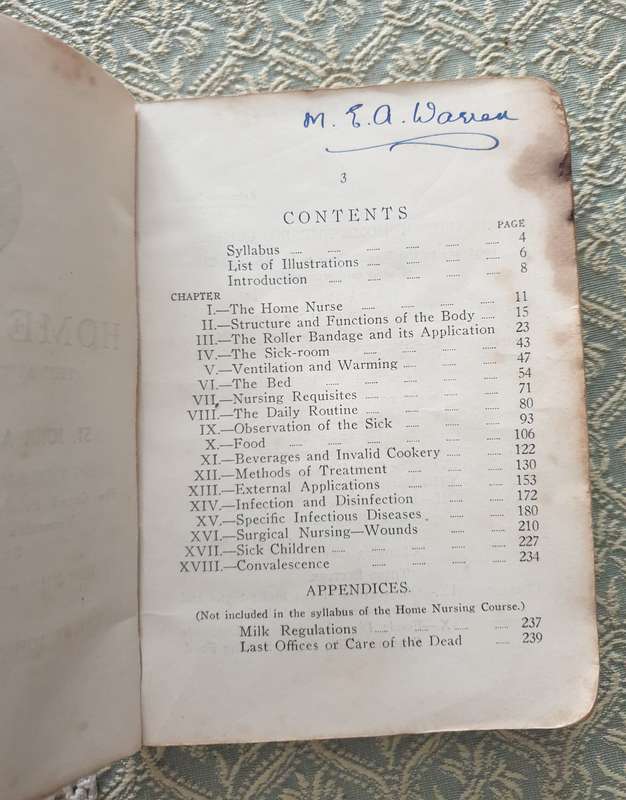 M. E. A. Warren
3
CONTENTS
PAGE
Syllabus ...... ...... ...... ...... ...... 4
List of Illustrations ...... ...... ...... ...... 6
Introduction ...... ...... ...... ...... ...... 8
CHAPTER
I.—The Home Nurse ...... ...... ...... ...... 11
II.—Structure and Functions of the Body ...... 15
III.—The Roller Bandage and its Application 23
IV.—The Sick-room ...... ...... ...... ...... 43
V.—Ventilation and Warming ...... ...... ...... 47
VI.—The Bed ...... ...... ...... ...... ...... 54
VII.—Nursing Requisites ...... ...... ...... ...... 71
VIII.—The Daily Routine ...... ...... ...... ...... 80
IX.—Observation of the Sick ...... ...... ...... 93
X.—Food ...... ...... ...... ...... ...... 106
XI.—Beverages and Invalid Cookery ...... ...... 122
XII.—Methods of Treatment ...... ...... ...... 130
XIII.—External Applications ...... ...... ...... 153
XIV.—Infection and Disinfection ...... ...... 172
XV.—Specific Infectious Diseases ...... ...... 180
XVI.—Surgical Nursing—Wounds ...... ...... 210
XVII.—Sick Children ...... ...... ...... ...... 227
XVIII.—Convalescence ...... ...... ...... ...... 234
APPENDICES.
(Not included in the syllabus of the Home Nursing Course.)
Milk Regulations ...... ...... ...... ...... 237
Last Offices or Care of the Dead ...... 239